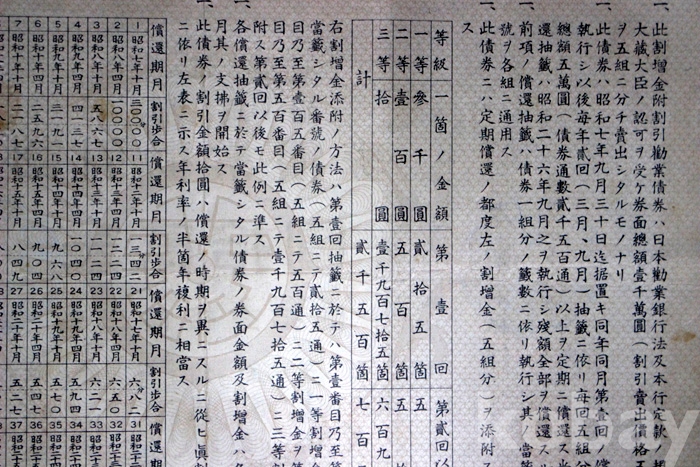 一、此割増金附割引勸業債券ハ日本勸業銀行法及本行定款ノ規
大藏大臣ノ認可ヲ受ケ券面總額壹千萬圓(割引賣出價格五
ヲ五組ニ分チ賣出シタルモノナリ
一、此債券ハ昭和七年九月三十日迄据置キ同年同月第壹回ノ償
執行シ以後毎年貳回(三月、九月)抽籤ニ依リ毎回五組分
總額五萬圓(債券通數貳千五百通)以上ヲ定期ニ償還ス
還抽籤ハ昭和二十六年九月之ヲ執行シ殘額全部ヲ償還ス
前項ノ償還抽籤ハ債券一組分ノ籤數ニ依リ執行シ其ノ當
號ヲ各組ニ通用ス
一、此債券ニハ定期償還ノ都度左ノ割増金(五組分)ヲ添附
ス
等級 一箇ノ金額 第壹回 第貳回以
一等 參千圓 貳拾五箇 五
二等 壹百圓 五百箇 五
三等 拾圓 壹千九百七拾五箇 六百九
計 貳千五百箇 七百
右割増金添附ノ方法ハ第壹回抽籤ニ於テハ第壹番目乃至第
當籤シタル番號ノ債券(五組ニテ貳拾五通)ニ一等割増金
目乃至第壹百五番目(五組ニテ五百通)ニ二等割増金ヲ第
目乃至第五百番目(五組ニテ壹千九百七拾五通)ニ三等割
附ス第貳回以後モ此例ニ準ス
各償還抽籤ニ於テ當籤シタル債券ノ券面金額及割増金ハ
月其ノ支拂ヲ開始ス
一、此債券ノ割引金額拾圓ハ償還ノ時期ヲ異ニスルニ從ヒ眞
ニ依リ左表ニ示ス年利率ノ半箇年複利ニ相當ス
償還期月 割引歩合 償還期月 割引歩合 償還期月 割引歩合 償還期月
1 昭和七年十月 三〇〇〇〇 11 昭和十二年十月 一三四二 21 昭和十七年十月 六八二 31
2 昭和八年四月 一〇〇〇〇 12 昭和十三年四月 一二二四 22 昭和十八年四月 六五〇 32
3 昭和八年十月 五八六七 13 昭和十三年十月 一一二四 23 昭和十八年十月 六二一 33
4 昭和九年四月 四一三七 14 昭和十四年四月 一〇四〇 24 昭和十九年四月 五九四 34
5 昭和九年十月 三一九一 15 昭和十四年十月 九六八 25 昭和十九年十月 五七〇 35
6 昭和十年四月 二五九六 16 昭和十五年四月 九〇四 26 昭和二十年四月 五四七 36
7 昭和十年十月 二一八七 17 昭和十五年十月 八四九 27 昭和二十年十月 五二七 37